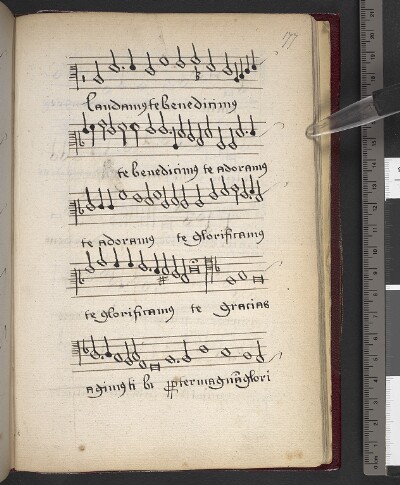 177
Laudamus te benedicimus
te benedicimus te adoramus
te adoramus te glorificamus
te glorificamus te Gracias
agimus ti bi propter magnam glori